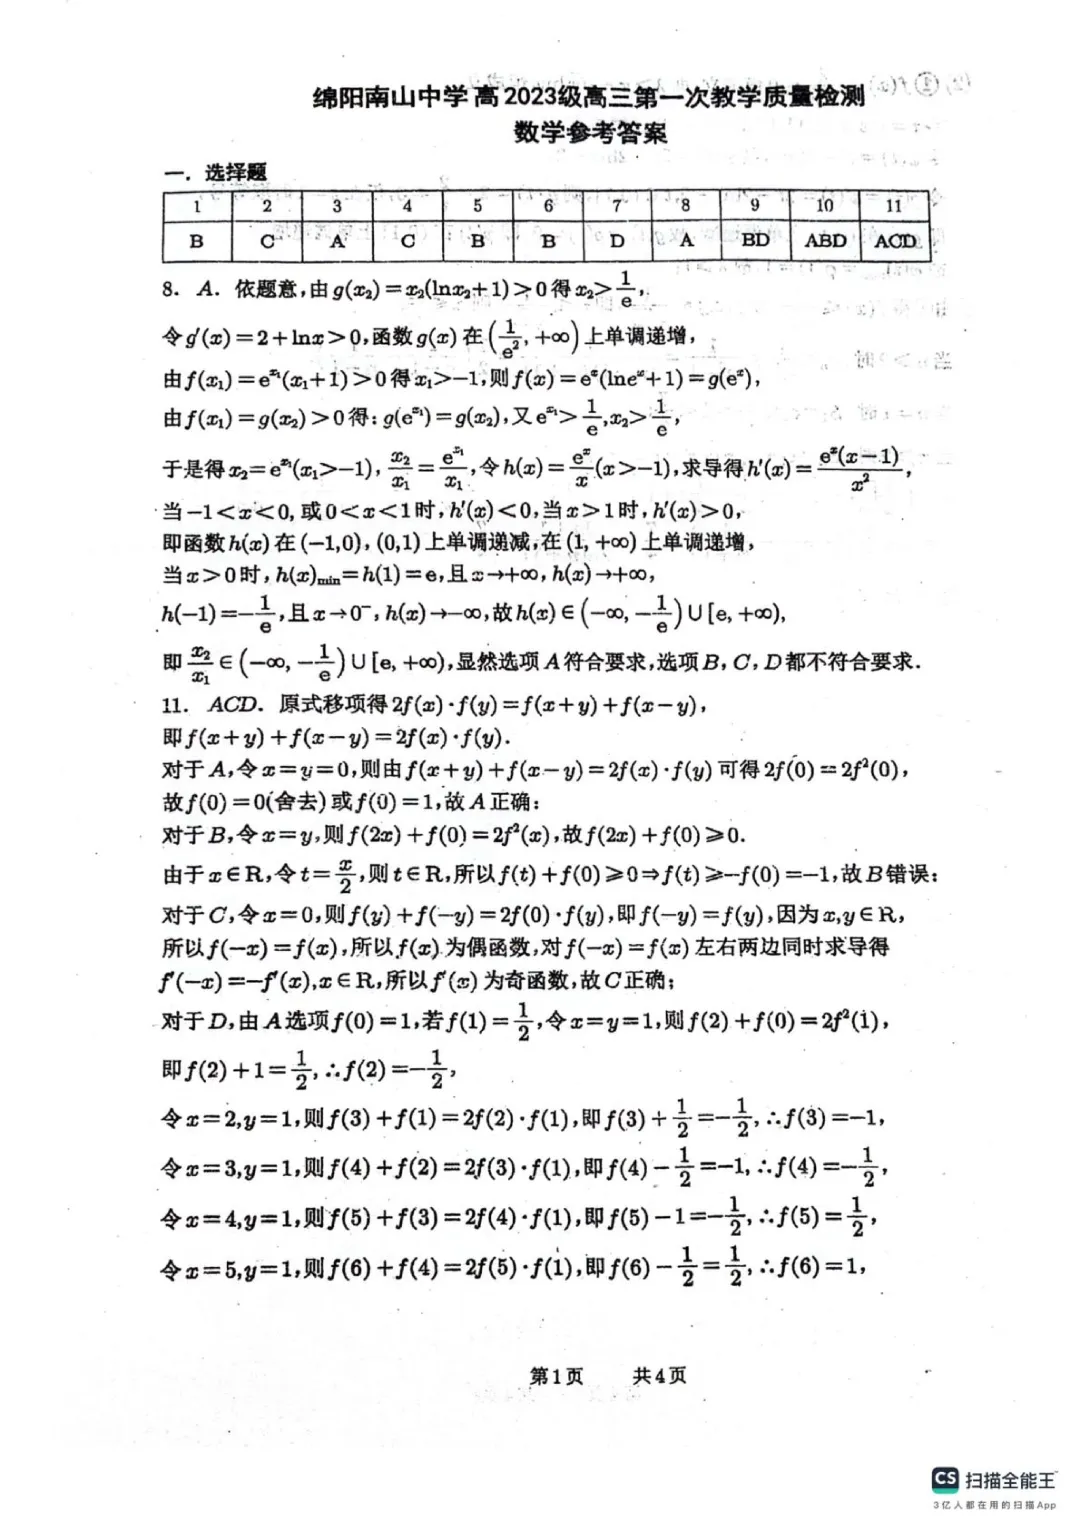 绵阳南山中学高2023级高三第一次教学质量检测
数学参考答案
一. 选择题
1 2 3 4 5 6 7 8 9 10 11
B C A C B B D A BD ABD ACD
8. A. 依题意,由g(x₂)=x₂(lnx₂+1)>0得x₂>1/e,
令g'(x)=2+lnx>0,函数g(x)在(1/e²,+∞)上单调递增,
由f(x₁)=e^{x₁}(x₁+1)>0得x₁>-1,则f(x)=e^x(lne^x+1)=g(e^x),
由f(x₁)=g(x₂)>0得:g(e^{x₁})=g(x₂),又e^{x₁}>1/e,x₂>1/e,
于是得x₂=e^{x₁}(x₁>-1),x₂/x₁=e^{x₁}/x₁,令h(x)=e^x/x(x>-1),求导得h'(x)=e^x(x-1)/x²,
当-1<x<0,或0<x<1时,h'(x)<0,当x>1时,h'(x)>0,
即函数h(x)在(-1,0),(0,1)上单调递减,在(1,+∞)上单调递增,
当x>0时,h(x)min=h(1)=e,且x→+∞,h(x)→+∞,
h(-1)=-1/e,且x→0⁻,h(x)→-∞,故h(x)∈(-∞,-1/e)∪[e,+∞),
即x₂/x₁∈(-∞,-1/e)∪[e,+∞),显然选项A符合要求,选项B,C,D都不符合要求.
11. ACD. 原式移项得2f(x)·f(y)=f(x+y)+f(x-y),
即f(x+y)+f(x-y)=2f(x)·f(y).
对于A,令x=y=0,则由f(x+y)+f(x-y)=2f(x)·f(y)可得2f(0)=2f²(0),
故f(0)=0(舍去)或f(0)=1,故A正确:
对于B,令x=y,则f(2x)+f(0)=2f²(x),故f(2x)+f(0)≥0.
由于x∈R,令t=x/2,则t∈R,所以f(t)+f(0)≥0⇒f(t)≥-f(0)=-1,故B错误:
对于C,令x=0,则f(y)+f(-y)=2f(0)·f(y),即f(-y)=f(y),因为x,y∈R,
所以f(-x)=f(x),所以f(x)为偶函数,对f(-x)=f(x)左右两边同时求导得
f'(-x)=-f'(x),x∈R,所以f'(x)为奇函数,故C正确;
对于D,由A选项f(0)=1,若f(1)=1/2,令x=y=1,则f(2)+f(0)=2f²(1),
即f(2)+1=1/2,∴f(2)=-1/2,
令x=2,y=1,则f(3)+f(1)=2f(2)·f(1),即f(3)+1/2=-1/2,∴f(3)=-1,
令x=3,y=1,则f(4)+f(2)=2f(3)·f(1),即f(4)-1/2=-1,∴f(4)=-1/2,
令x=4,y=1,则f(5)+f(3)=2f(4)·f(1),即f(5)-1=-1/2,∴f(5)=1/2,
令x=5,y=1,则f(6)+f(4)=2f(5)·f(1),即f(6)-1/2=1/2,∴f(6)=1,
第1页 共4页
CS 扫描全能王
3亿人都在用的扫描App